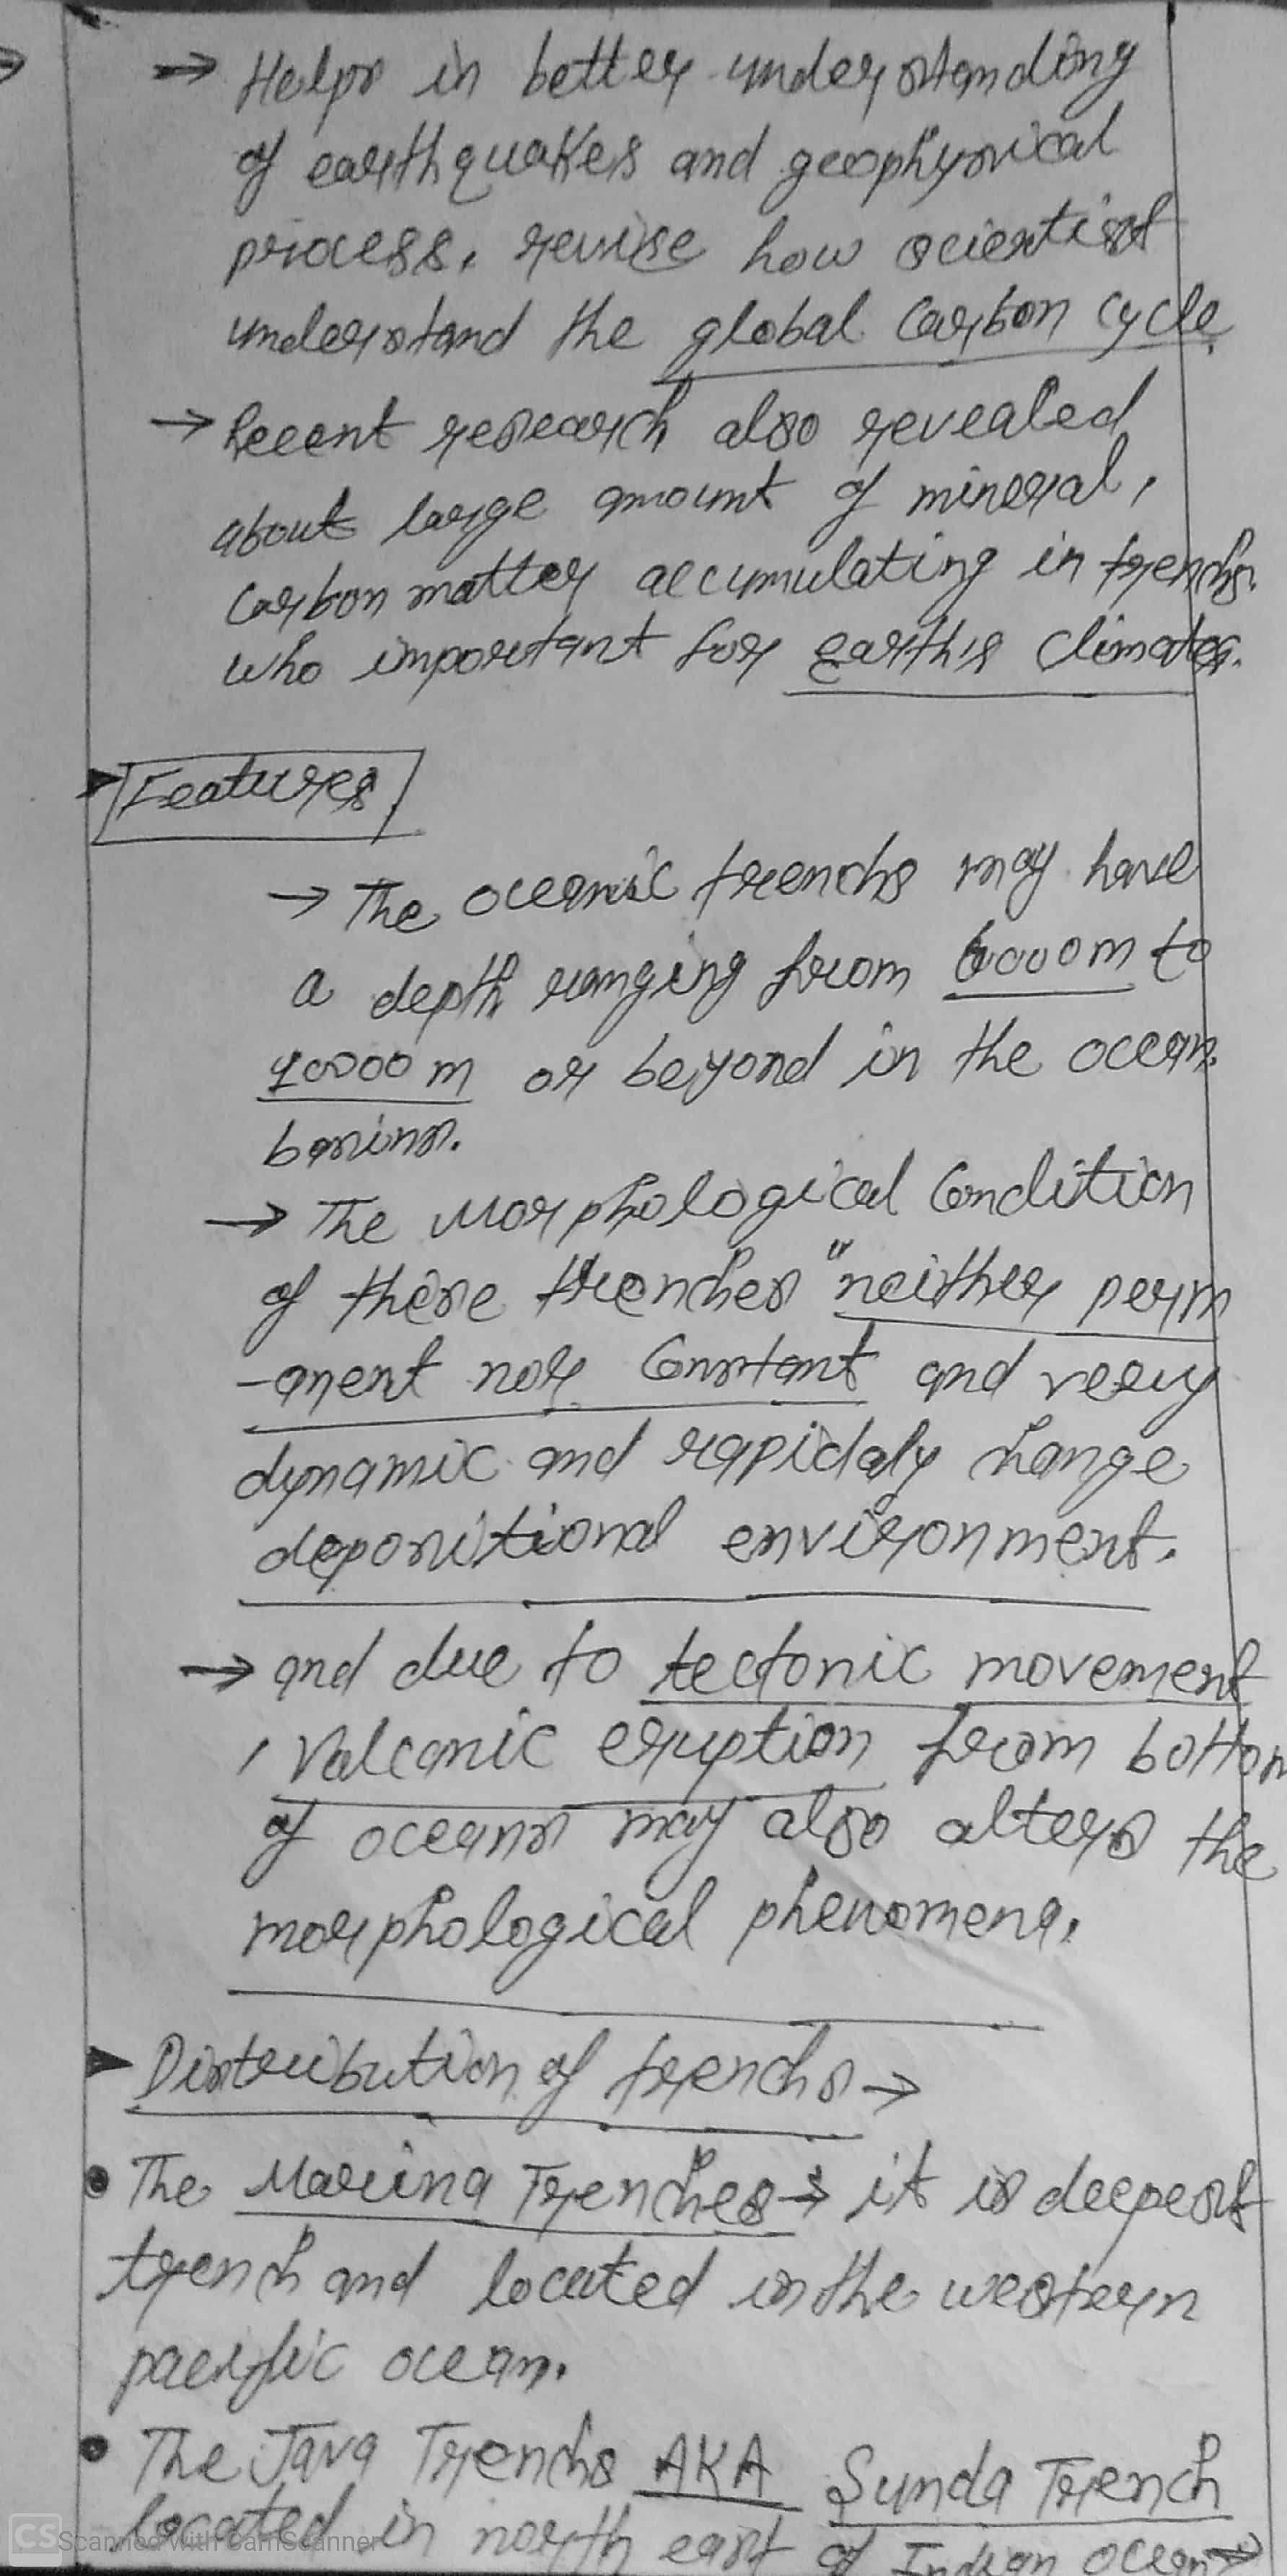 → Helps in better understanding
of earthquakes and geophysical
process. revise how scientist
understand the global carbon cycle.
→ Recent research also revealed
about large amount of mineral,
carbon matter accumulating in trenchs.
who important for earth's climates.
Features
→ The oceanic trenchs may have
a depth ranging from 6000m to
10000 m or beyond in the ocean
basins.
→ The Morphological Condition
of these trenches "neither perm
-anent nor Constant and very
dynamic and rapidaly change
depositional environment.
→ and due to tectonic movement
, Valcanic eruption from bottom
of oceans may also alters the
morphological phenomena.
Distribution of trenchs →
• The Marina Trenches → it is deepest
trench and located in the western
pacific ocean.
• The Java Trenchs AKA Sunda Trench
located in north east of Indian ocean →
CS Scanned with CamScanner